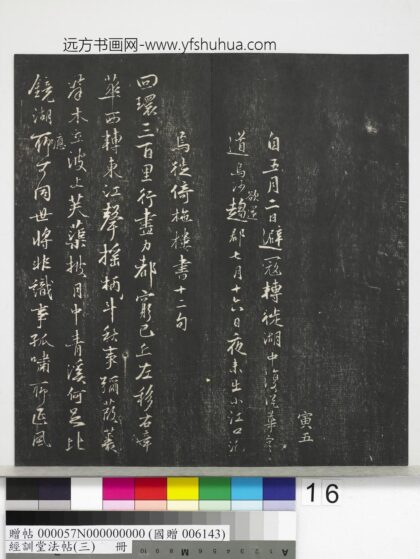 远方书画网-www.yfshuhua.com
寅五
自五月二日避寇轉徙湖中
道 趨郡七月十六日夜未出小江口
欲還
徙倚柂樓書十二句
回環三百里行盡力都窮已 左移右
西轉東江聲搖柄斗秋事彌
木 波上芙蕖 月中青溪何足比
應
鏡湖聊可同世將非識事孤嘯聊 風
16
贈帖 000057N000000000 (國贈 006143)
經訓堂法帖(三) 冊